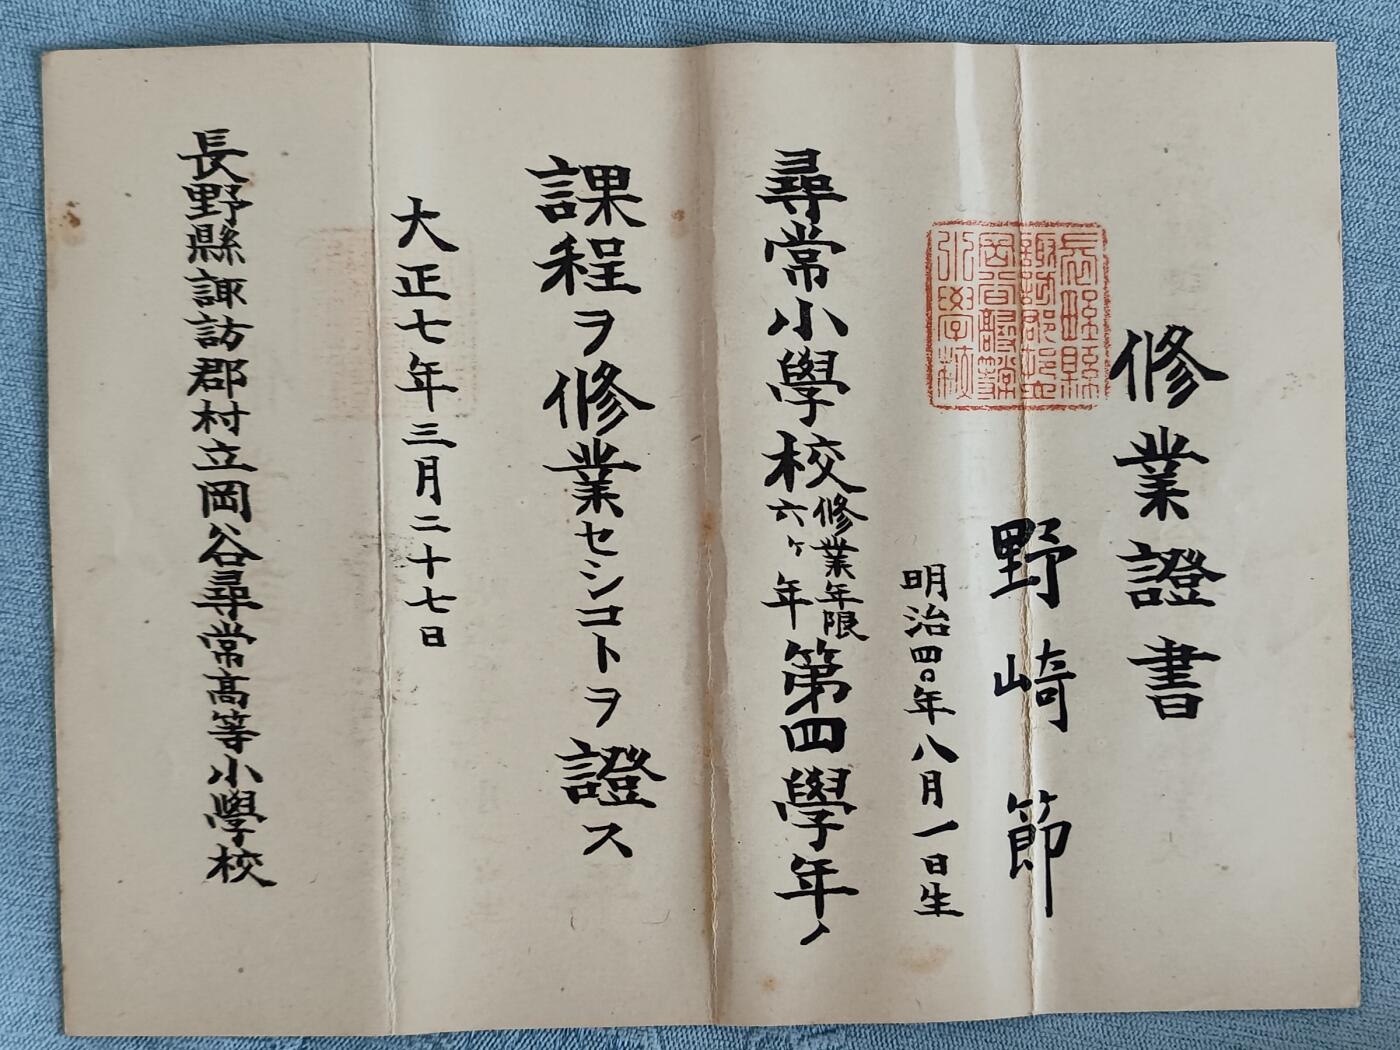 修業證書
長野縣
諏訪郡村立
岡谷尋常高等
小學校
野崎節
明治四〇年八月一日生
尋常小學校修業年限六ヶ年第四學年ノ
課程ヲ修業セシコトヲ證ス
大正七年三月二十七日
長野縣諏訪郡村立岡谷尋常高等小學校